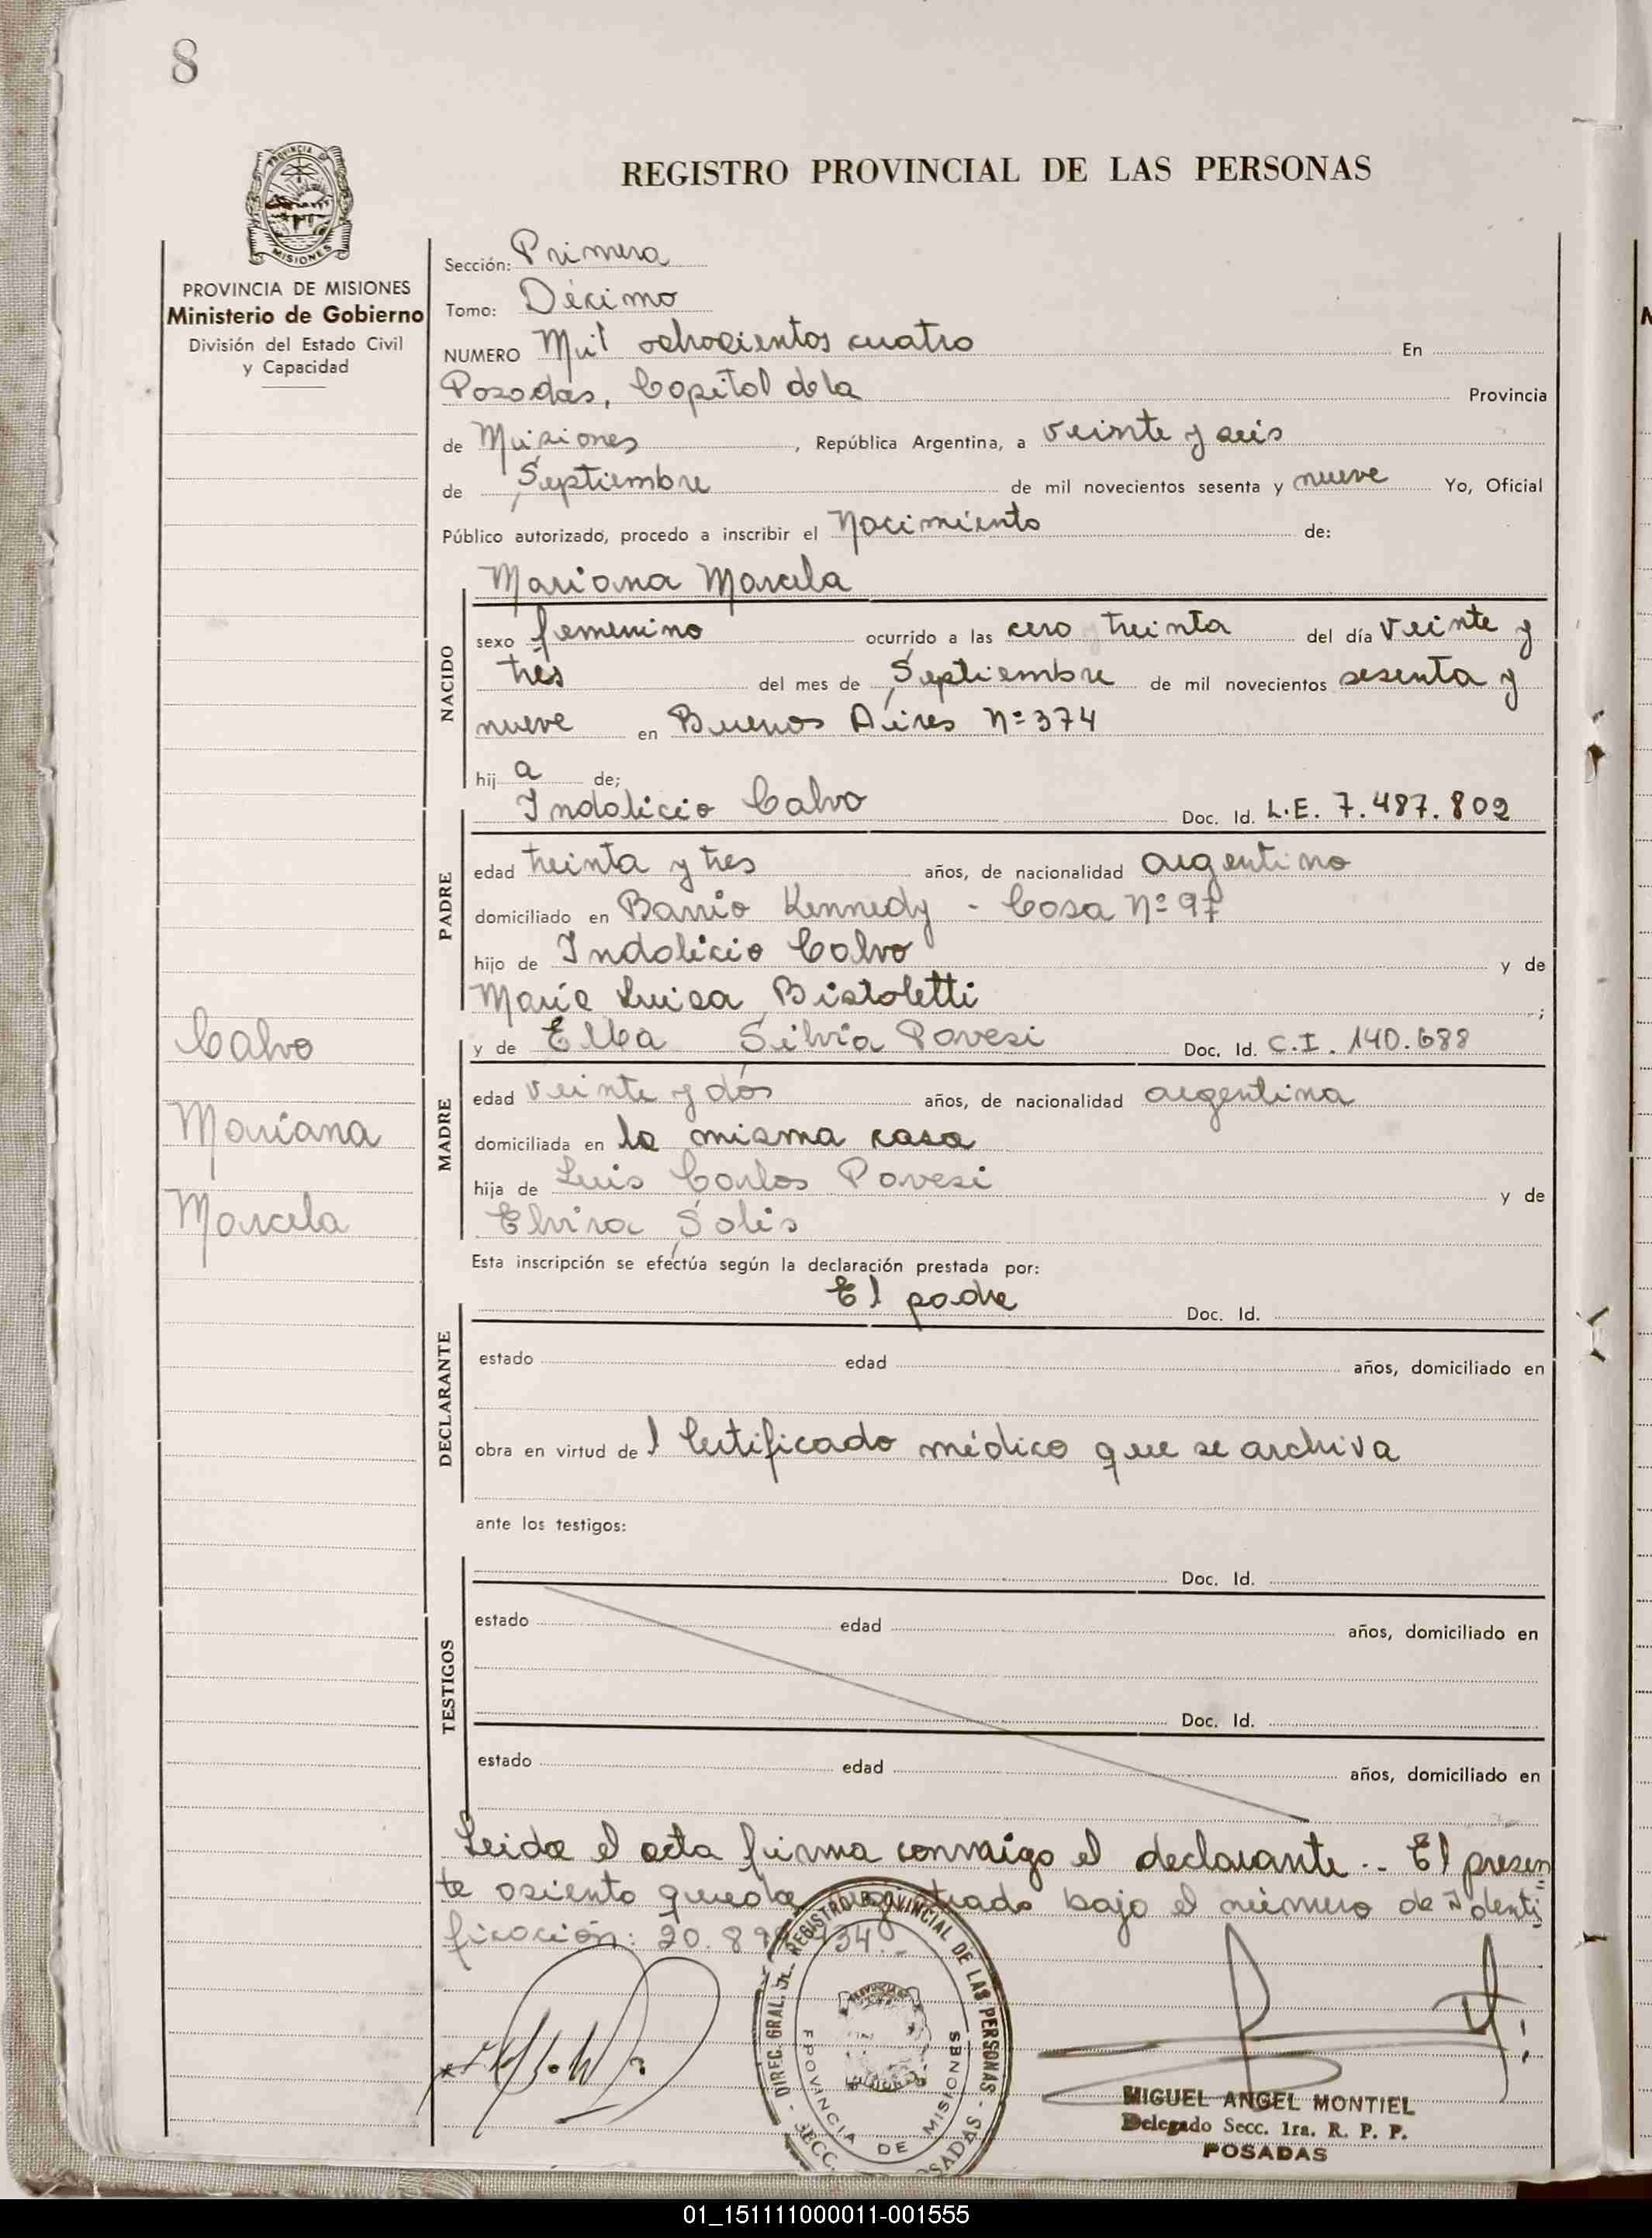 8
PROVINCIA DE
MISIONES
REGISTRO PROVINCIAL DE LAS PERSONAS
PROVINCIA DE MISIONES
Ministerio de Gobierno
División del Estado Civil
y Capacidad
Sección: Primera
Tomo: Décimo
NUMERO Mil ochocientos cuatro En
Posadas, Capital de la Provincia
de Misiones, República Argentina, a veinte y seis
de Septiembre de mil novecientos sesenta y nueve Yo, Oficial
Público autorizado, procedo a inscribir el Nacimiento de:
Mariana Marcela
NACIDO
sexo femenino ocurrido a las cero y treinta del día veinte y
tres del mes de Septiembre de mil novecientos sesenta y
nueve en Buenos Aires Nº 374
hij a de;
Indalicio Calvo Doc. Id. L.E. 7.487.802
PADRE
edad treinta y tres años, de nacionalidad argentino
domiciliado en Barrio Kennedy - Casa Nº 97
hijo de Indalicio Calvo y de
María Luisa Bistoletti ;
y de Elba Silvia Pavesi Doc. Id. C.I. 140.688
MADRE
edad veinte y dos años, de nacionalidad argentina
domiciliada en la misma casa
hija de Luis Carlos Pavesi y de
Elvira Solis
Calvo
Mariana
Marcela
Esta inscripción se efectúa según la declaración prestada por:
El padre Doc. Id.
DECLARANTE
estado edad años, domiciliado en
obra en virtud de l Certificado médico que se archiva
ante los testigos:
Doc. Id.
TESTIGOS
estado edad años, domiciliado en
Doc. Id.
estado edad años, domiciliado en
Leida el acta firma conmigo el declarante.. El presen
te asiento queda registrado bajo el número de identi
ficación:
DIREC. GRAL. REGISTRO PROVINCIAL DE LAS PERSONAS - SECC. POSADAS -
PROVINCIA DE MISIONES
MIGUEL ANGEL MONTIEL
Delegado Secc. 1ra. R. P. P.
POSADAS
01_151111000011-001555